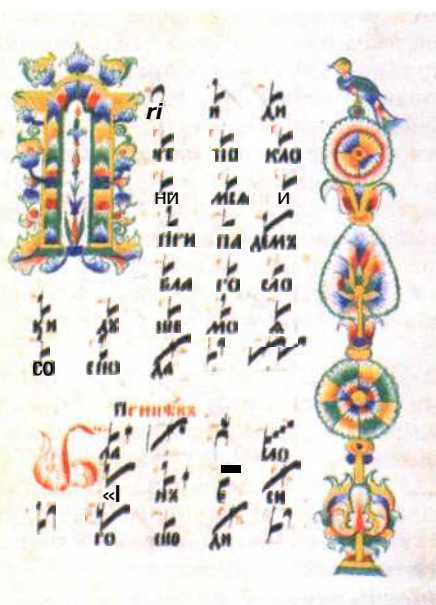 ri и ди
те по кло
ни мсѧ и
при па демъ
бла го сло
ви дꙋ ше мо ѧ
го спо да
Припѣвъ
нъ е си
го спо ди